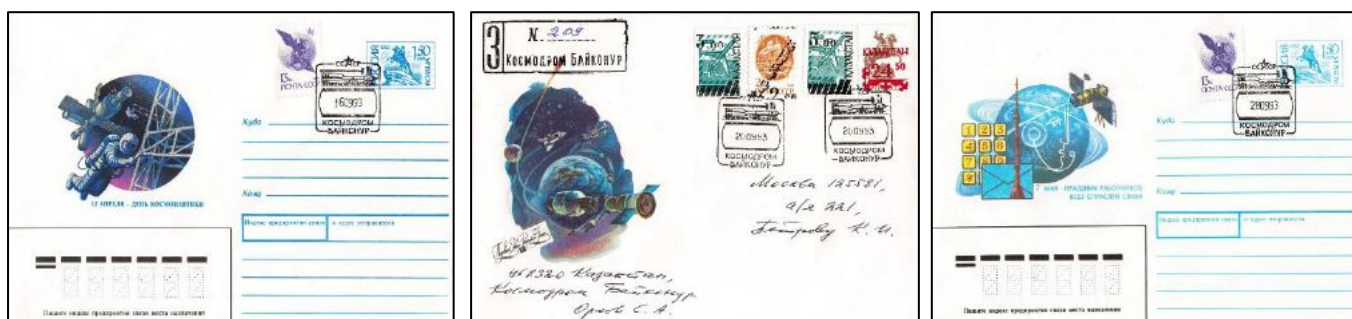 13к
ПОЧТА СССР
РОССИЯ
150
160993
КОСМОДРОМ
БАЙКОНУР
Куда
Кому
12 АПРЕЛЯ - ДЕНЬ КОСМОНАВТИКИ
Индекс предприятия связи и адрес отправителя
Пишите индекс предприятия связи места назначения
З
N. 209
Космодром Байконур
ҚАЗАҚСТАН
24.50
200993
КОСМОДРОМ
БАЙКОНУР
200993
КОСМОДРОМ
БАЙКОНУР
Москва 125581,
а/я 221,
Петрову К. И.
468320 Казахстан,
Космодром Байконур
Орлов С. А.
13к
ПОЧТА СССР
280993
КОСМОДРОМ
БАЙКОНУР
1 2 3
Куда
Кому
7 МАЯ - ПРАЗДНИК РАБОТНИКОВ
ВСЕХ ОТРАСЛЕЙ СВЯЗИ
Индекс предприятия связи и адрес отправителя
Пишите индекс предприятия связи места назначения